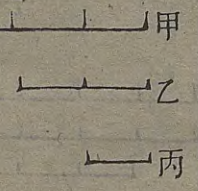 甲
乙
丙